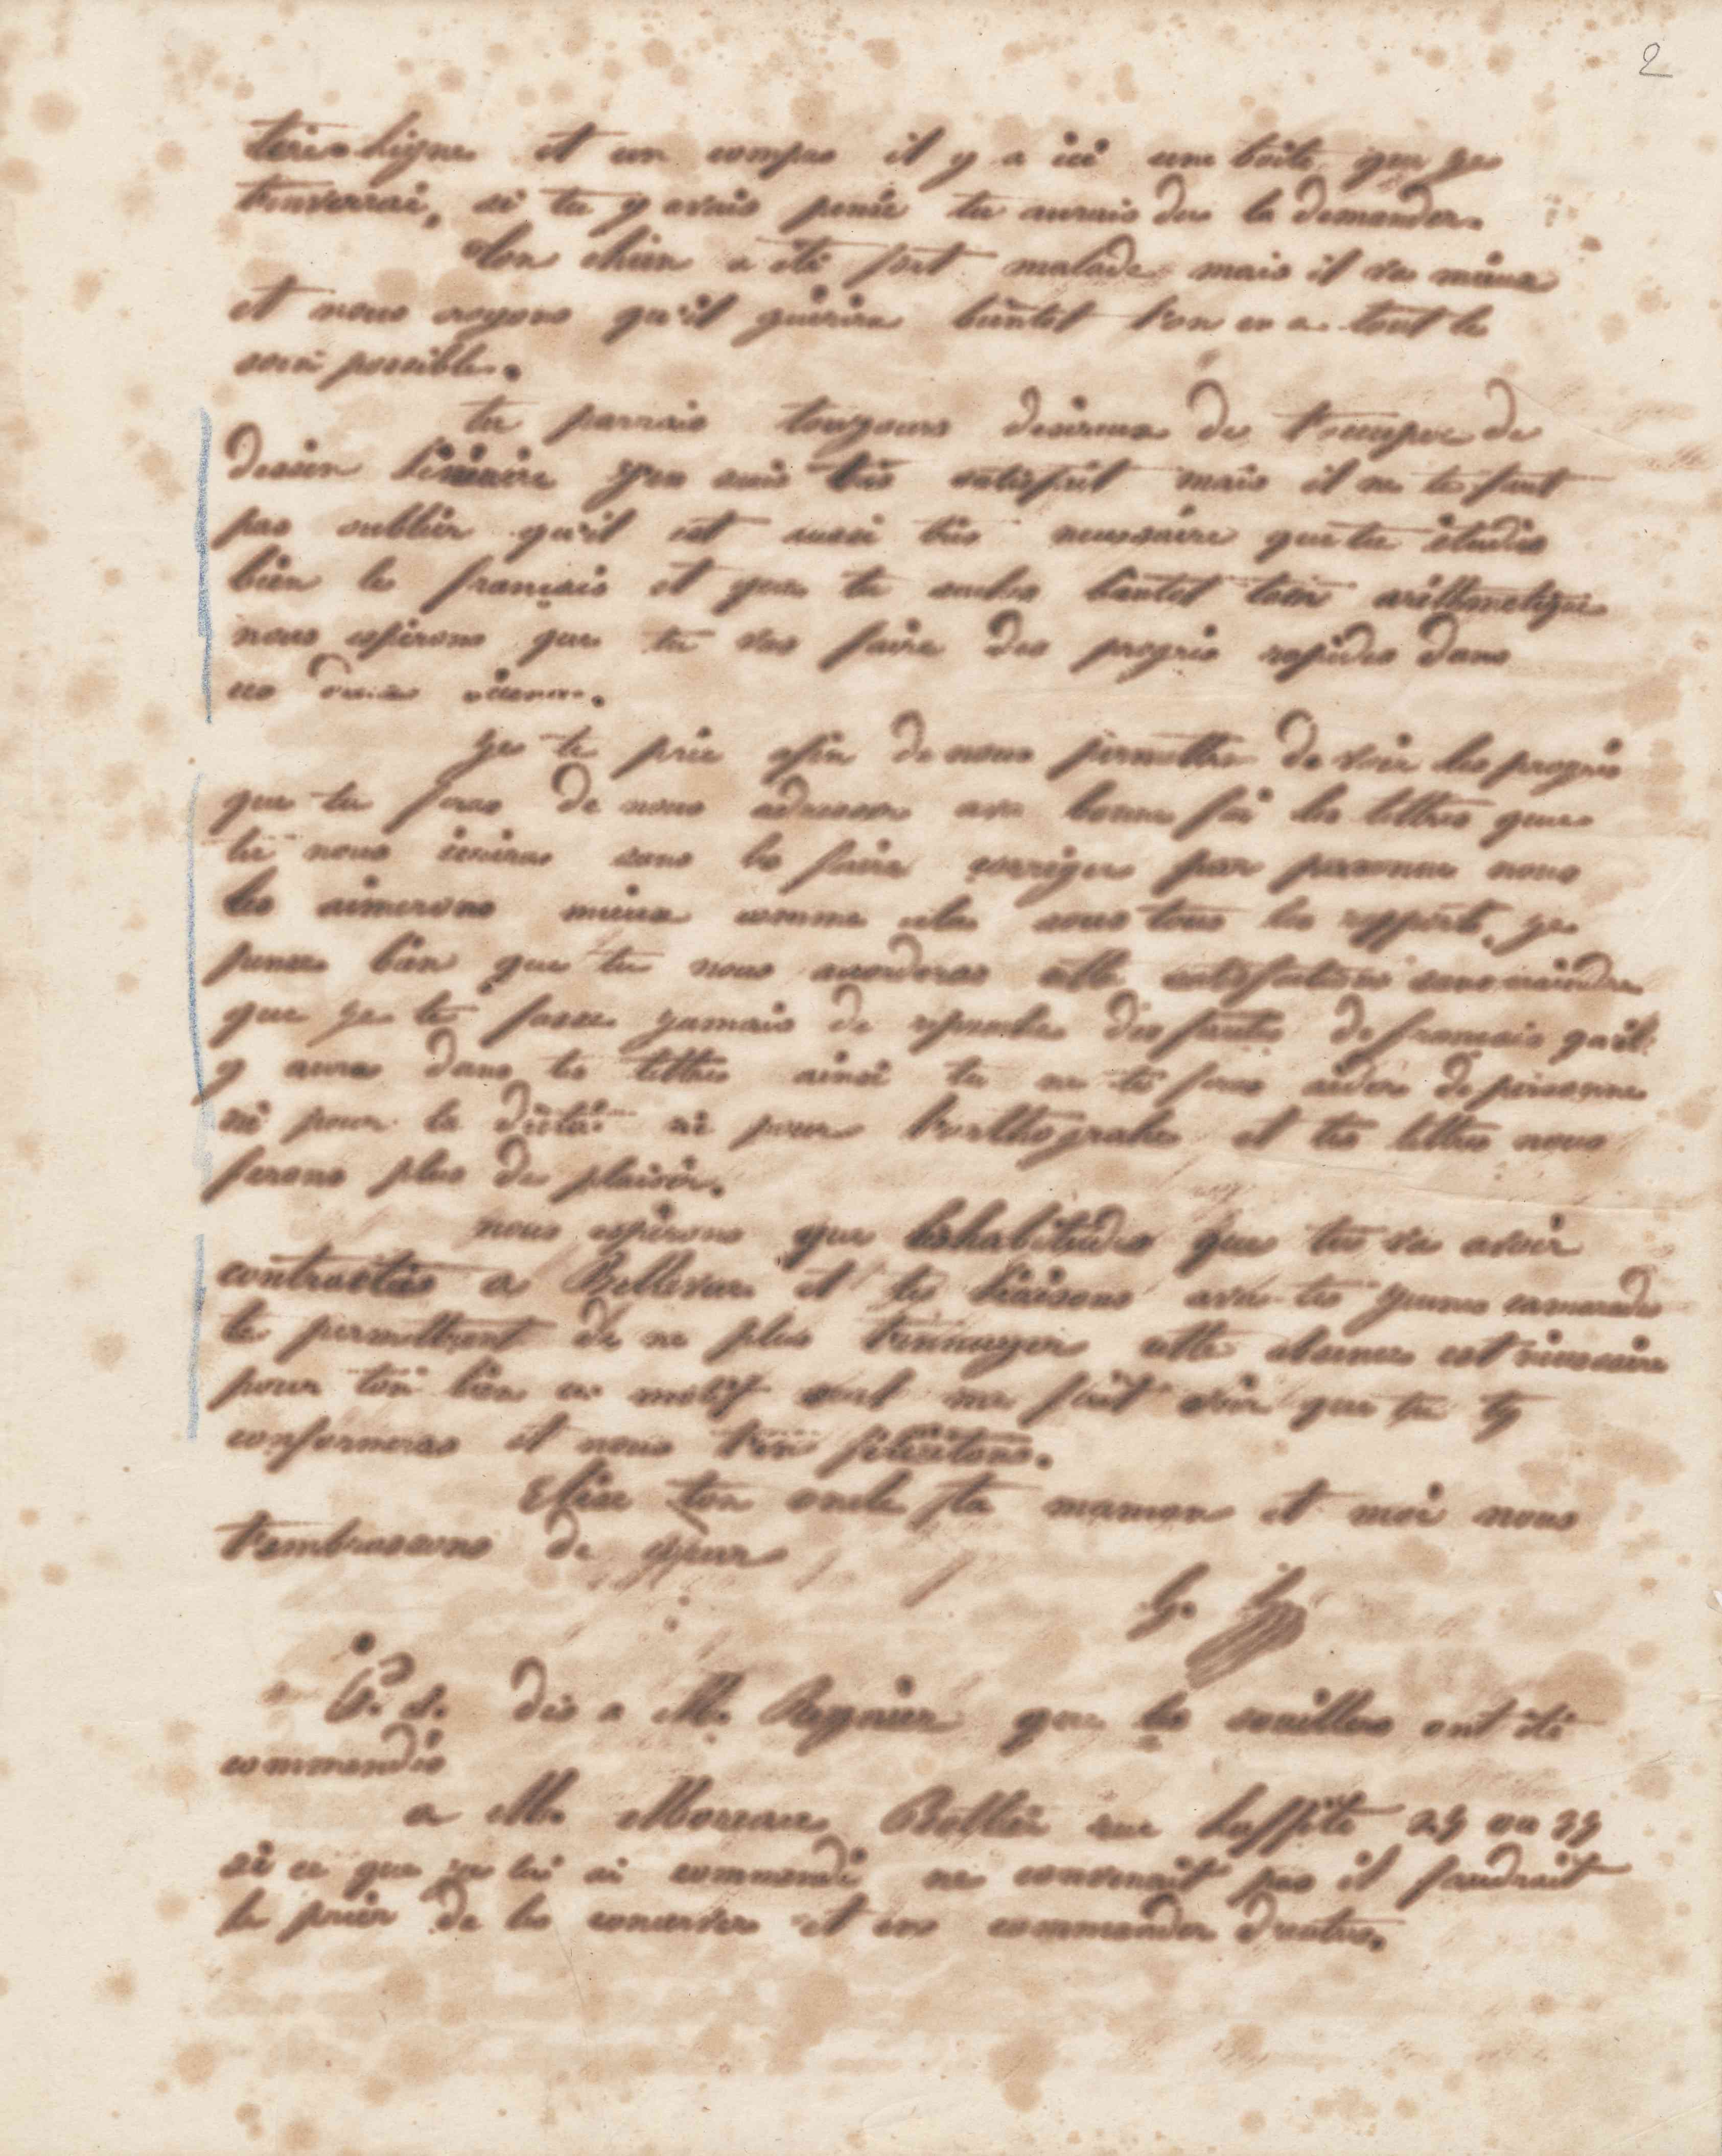 2
tire-ligne et un compas il y a ici une boîte que je
trouverai, si tu y avais pensé tu aurais du la demander.
Ton chien a été fort malade mais il va mieux
et nous croyons qu'il guérira bientot l'on en a tout le
soin possible.
tu parrais toujours desireux de t'occuper de
dessin linéaire j'en suis très satisfait mais il ne te faut
pas oublier qu'il est aussi très necessaire que tu étudie
bien le français et que tu saches bientot bien arithmetique
nous esperons que tu vas faire des progrès rapides dans
ces
je te prie afin de nous permettre de voir les progrès
que tu feras de nous adresser avec bonne foi les lettres que
tu nous écriras sans les faire corriger par personne nous
les aimerons mieux comme cela sous tous les rapports, je
pense bien que tu nous accorderas cette satisfaction sans craindre
que je te fasse jamais de reproches des fautes de francais qu'il
y aura dans tes lettres ainsi tu ne te feras aider de personne
ni pour la dictée ni pour l'orthographe et tes lettres nous
ferons plus de plaisir.
nous espérons que les habitudes que tu va avoir
contractées a Bellevue et tes liaisons avec tes jeunes camarades
te permettront de ne plus t'ennuyer cette absence est nécessaire
pour ton bien ce motif seul me fait voir que tu t'y
conformeras et nous t'en félicitons.
Elise ton oncle ta maman et moi nous
t'embrassons de cœur
P. S. dis a M. Reynier que les souilliers ont été
commandés
a M. Moreau Bottier rue Laffite
si ce que je lui ai commandé ne convenait pas il faudrait
le prier de les conserver et en commander d'autres.